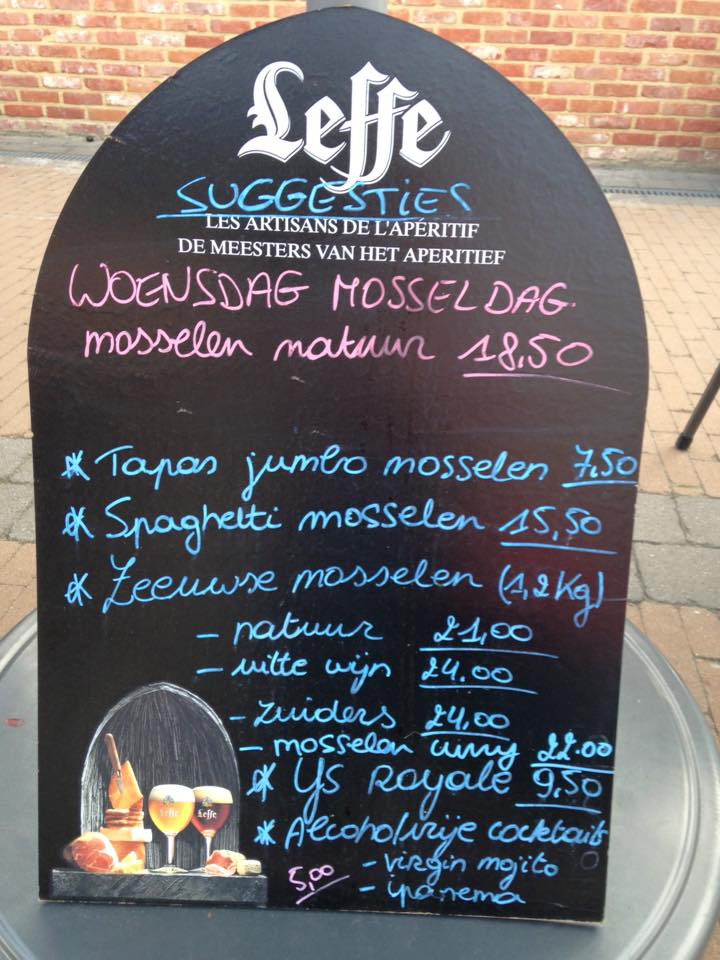 Leffe
SUGGESTIES
LES ARTISANS DE L'APÉRITIF
DE MEESTERS VAN HET APERITIEF
WOENSDAG MOSSELDAG.
mosselen natuur 18,50
* Tapas jumbo mosselen 7,50
* Spaghetti mosselen 15,50
* Zeeuwse mosselen (1,2Kg)
- natuur 21,00
- witte wijn 24.00
- zuiders 24,00
- mosselen curry 22.00
* Ijs Royale 9,50
* Alcoholvrije cocktails
- virgin mojito
5,00 - ipanema
Leffe Leffe